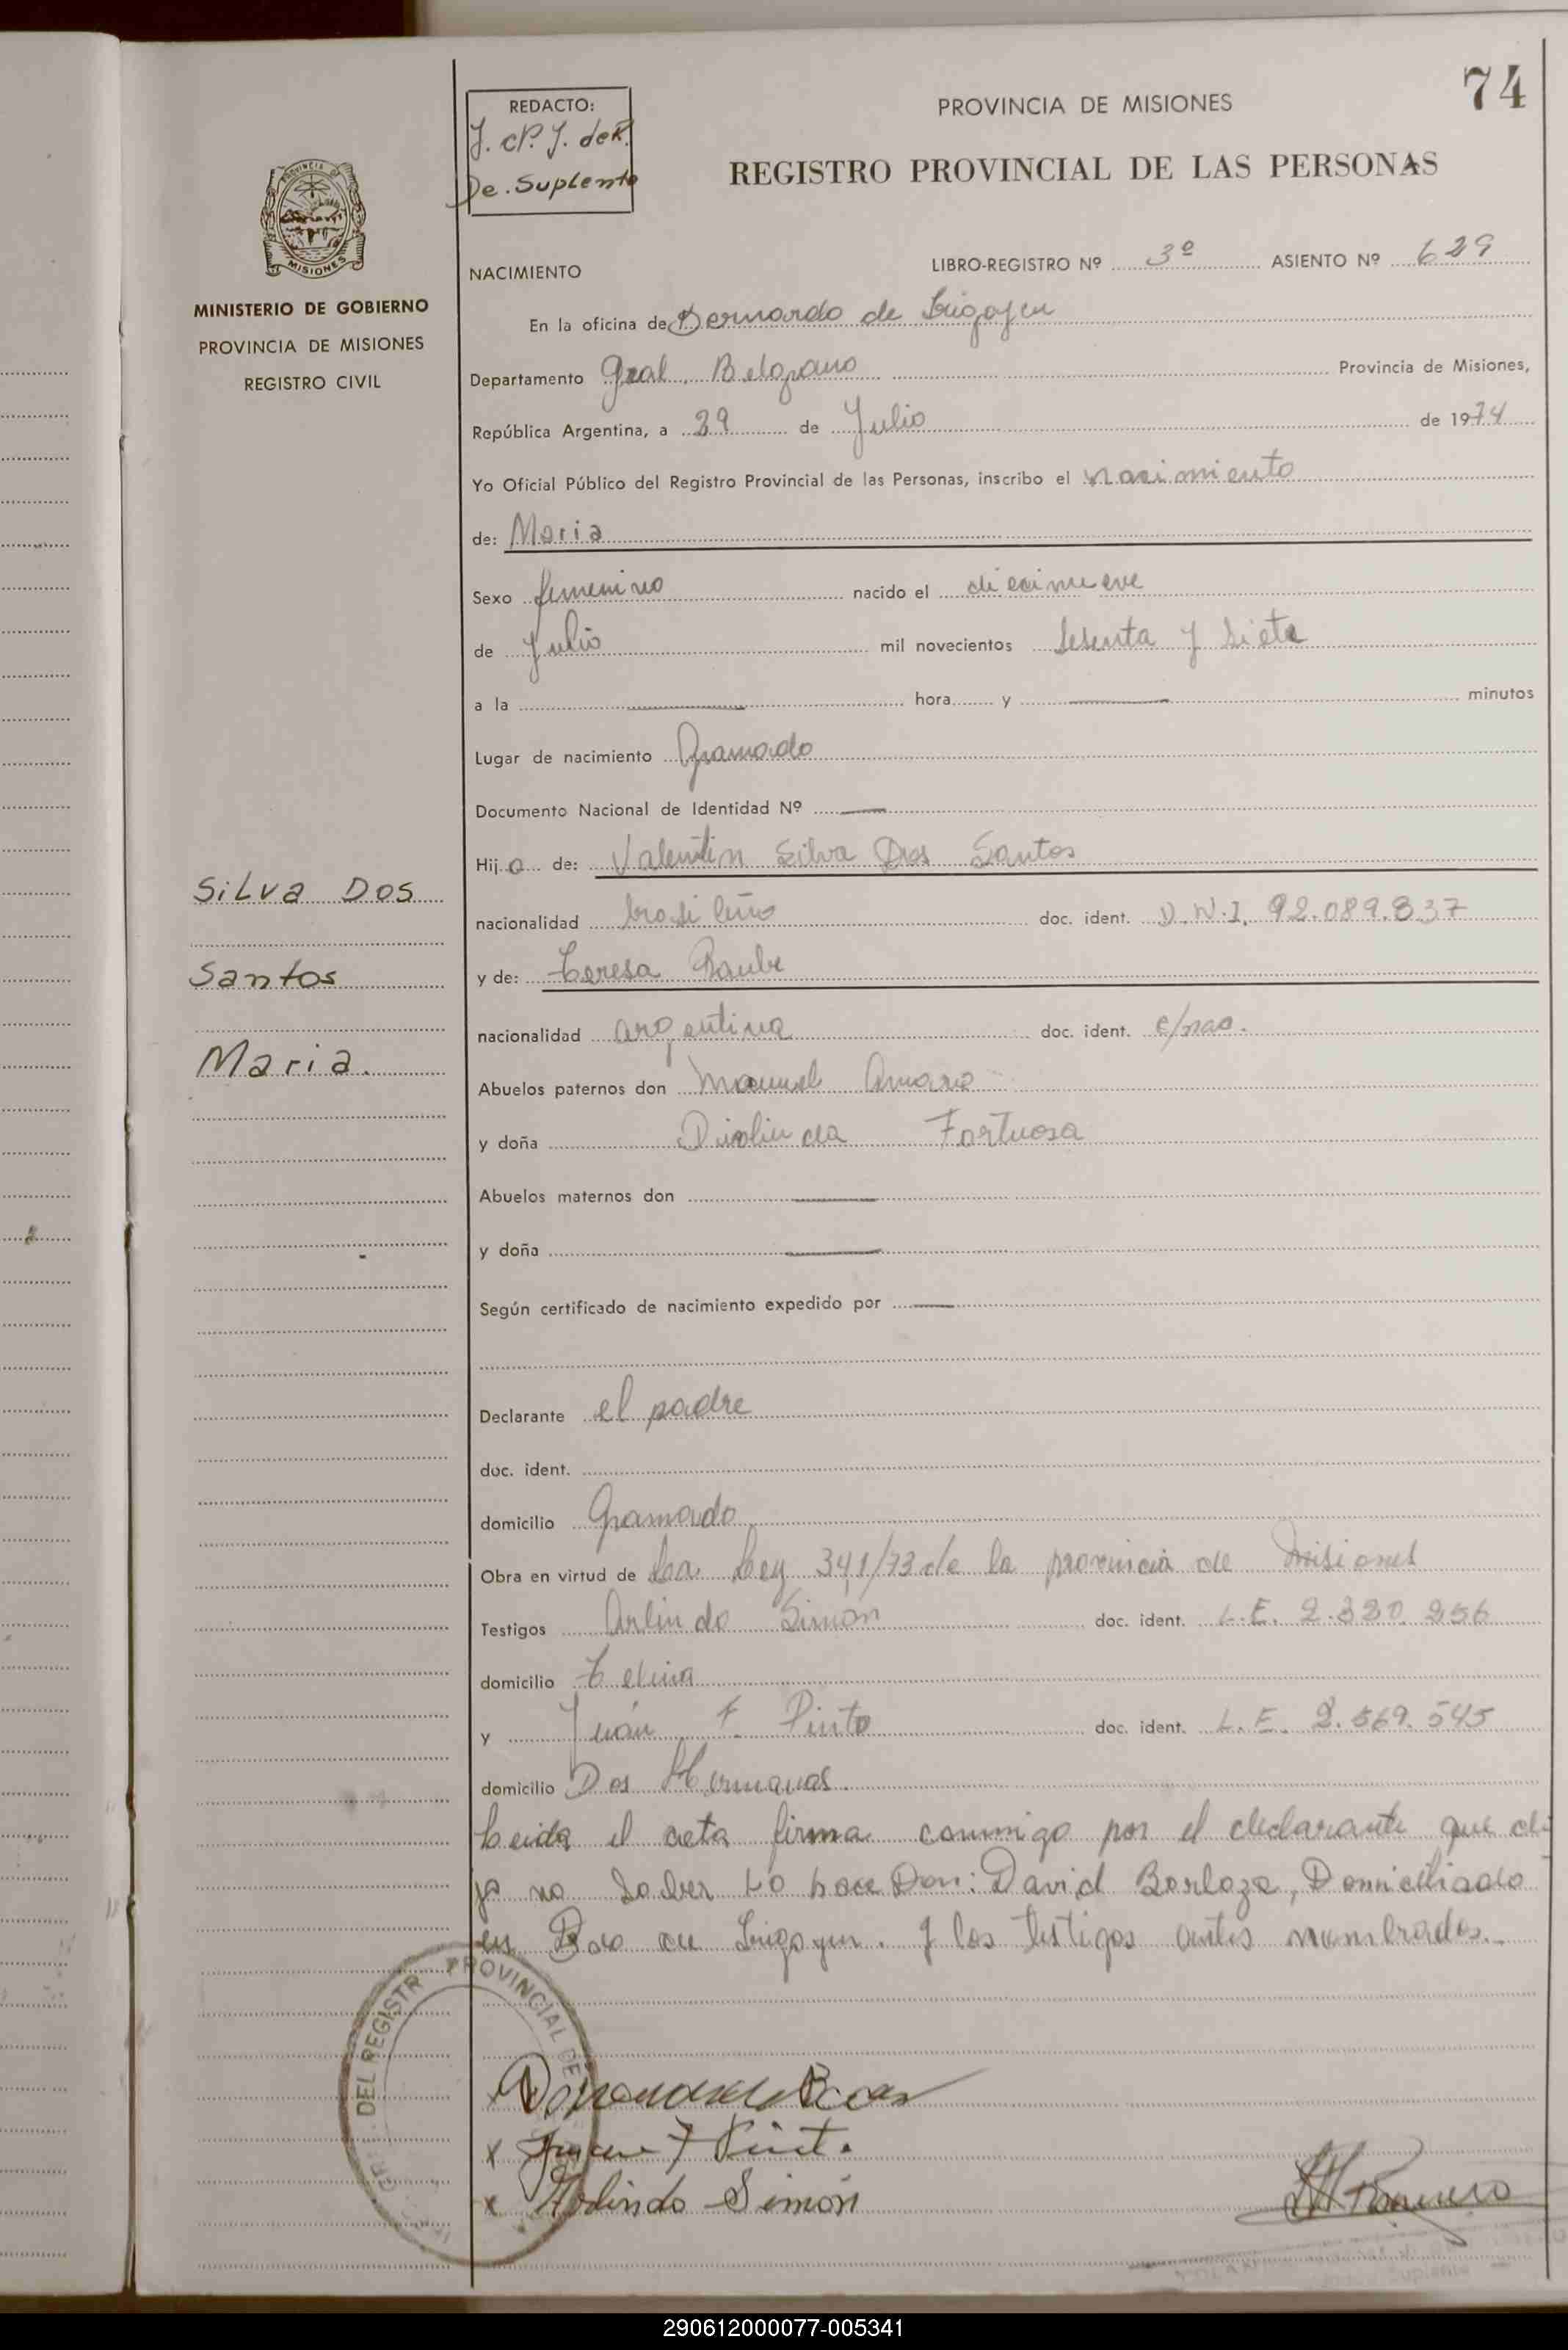 74
REDACTO:
De. Suplente
PROVINCIA DE MISIONES
REGISTRO PROVINCIAL DE LAS PERSONAS
PROVINCIA
MISIONES
MINISTERIO DE GOBIERNO
PROVINCIA DE MISIONES
REGISTRO CIVIL
NACIMIENTO LIBRO-REGISTRO Nº 3º ASIENTO Nº 629
En la oficina de Bernardo de Irigoyen
Departamento Gral. Belgrano Provincia de Misiones,
República Argentina, a 29 de Julio de 1974
Yo Oficial Público del Registro Provincial de las Personas, inscribo el nacimiento
de: Maria
Sexo femenino nacido el diecinueve
de Julio mil novecientos sesenta y siete
a la hora y minutos
Lugar de nacimiento Gramado
Documento Nacional de Identidad Nº
Hij a de: Valentin Silva Dos Santos
nacionalidad brasileño doc. ident. D.N.I. 92.089.837
y de: Teresa
nacionalidad argentina doc. ident.
Abuelos paternos don Manuel
y doña Fortuosa
Abuelos maternos don
y doña
Según certificado de nacimiento expedido por
Declarante el padre
doc. ident.
domicilio Gramado
Obra en virtud de La Ley 341/73 de la provincia de Misiones
Testigos Arlindo Simón doc. ident. L.E. 2.320.256
domicilio
y Juán F. Pinto doc. ident. L.E. 2.569.545
domicilio Dos Hermanas.
Leida el acta firma conmigo por el declarante que di
ja no saber Lo hace Don: David Barloza, Domiciliado
en Bdo de Irigoyen. y los testigos antes nombrados.
SiLva Dos
Santos
Maria.
DEL REGISTR PROVINCIAL DE
x
x Juan F Pinto
x Arlindo Simón
Romero
Suplente
290612000077-005341